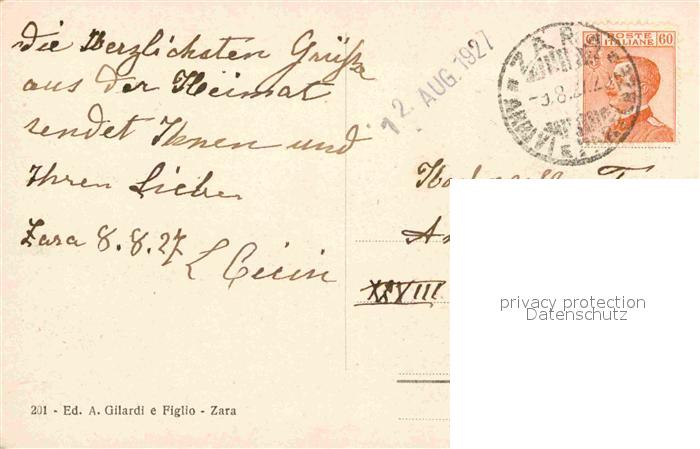 die Herzlichsten Grüße
aus der Heimat
sendet Ihnen und
Ihren Lieben
Zara 8.8.27
12. AUG. 1927
ZARA
ARRIVI E PARTENZE
POSTE
ITALIANE 60
XXVIII
privacy protection
Datenschutz
201 - Ed. A. Gilardi e Figlio - Zara